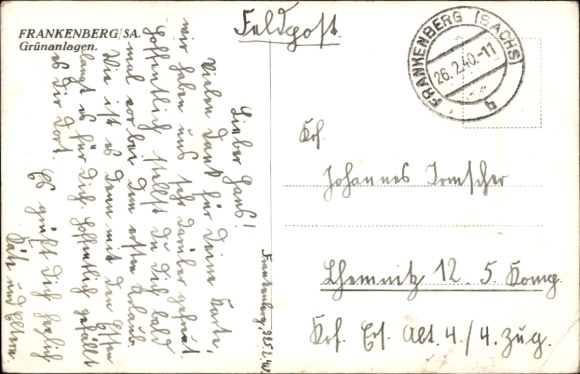 FRANKENBERG/SA.
Grünanlagen.
Feldpost.
FRANKENBERG (SACHS)
26.2.40.-11
b
Frankenberg, 25.2.40
Lieber Hans!
Vielen Dank für Deine Karte,
wir haben uns sehr darüber gefreut.
Hoffentlich stellst Du Dich bald
mal vor bei dem ersten Urlaub.
Wie ist es denn mit dem Essen
langt es für Dich. Hoffentlich gefällt
es Dir dort.
Es grüßt Dich herzlich
Käte und Eltern.
Krf.
Johannes Irmscher
Chemnitz 12. 5. Komp.
Krf. Ers. Abt. 4./4. Zug.